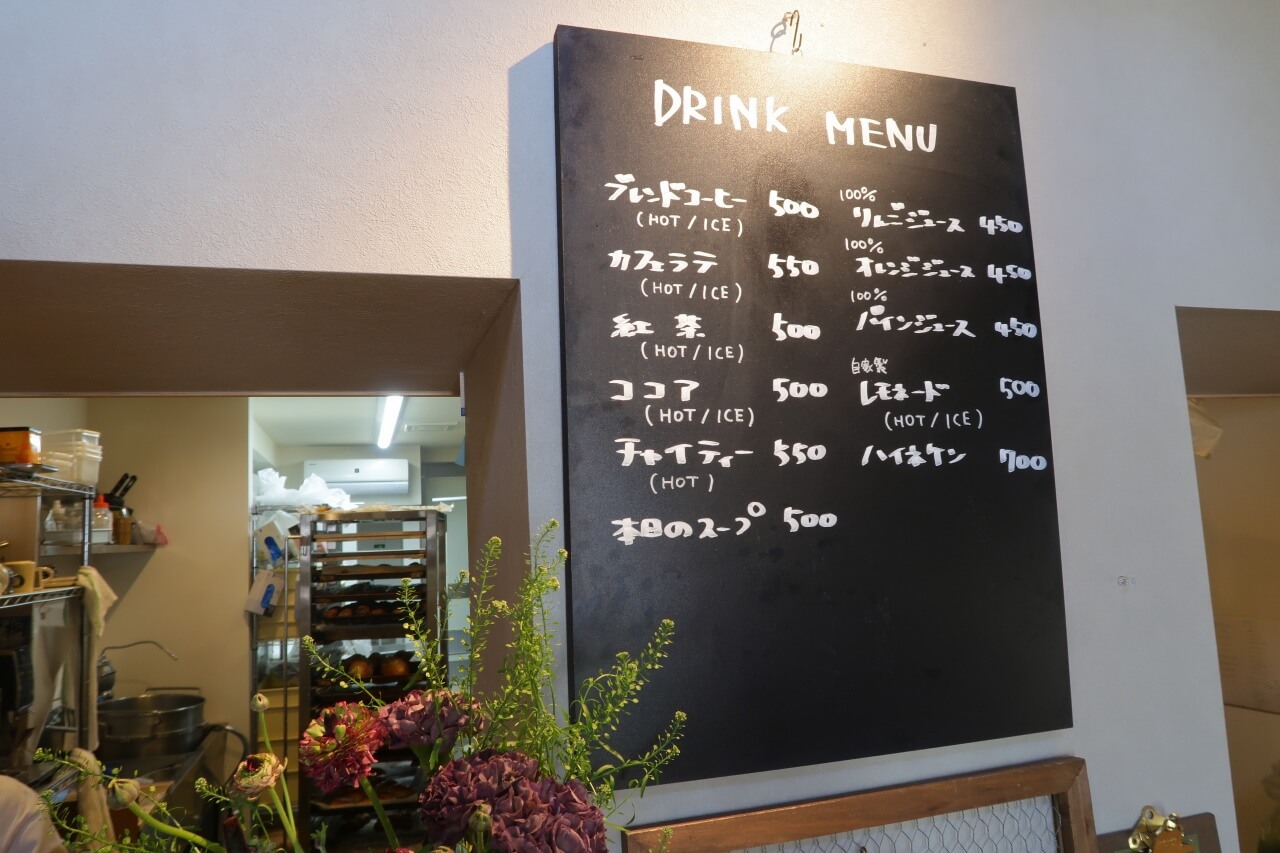 DRINK MENU
ブレンドコーヒー 500
(HOT / ICE)
カフェラテ 550
(HOT / ICE)
紅茶 500
(HOT / ICE)
ココア 500
(HOT / ICE)
チャイティー 550
(HOT)
本日のスープ 500
100%
リンゴジュース 450
100%
オレンジジュース 450
100%
パインジュース 450
自家製
レモネード 500
(HOT / ICE)
ハイネケン 700